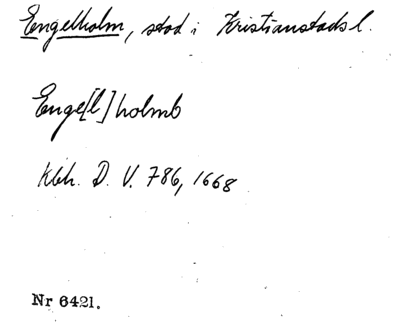 Engelholm, stad i Kristianstads l.
Enge[l]holmb
Kbh. D. V. 786, 1668
Nr 6421.